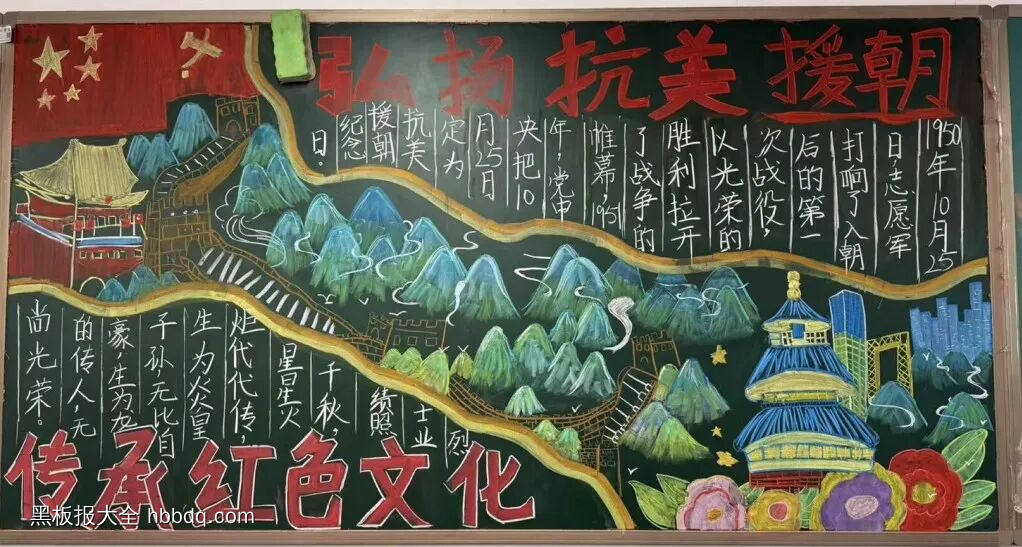 弘扬抗美援朝
1950年10月25
日,志愿军
打响了入朝
后的第一
次战役,
以光荣的
胜利拉开
了战争的
帷幕,1951
年,党中
央把10
月25日
定为
抗美
援朝
纪念
日。
烈
士业
绩照
千秋,
星星火
炬代代传,
生为炎黄
子孙无比自
豪,生为龙
的传人,无
尚光荣。
传承红色文化
黑板报大全 hbbdq.com